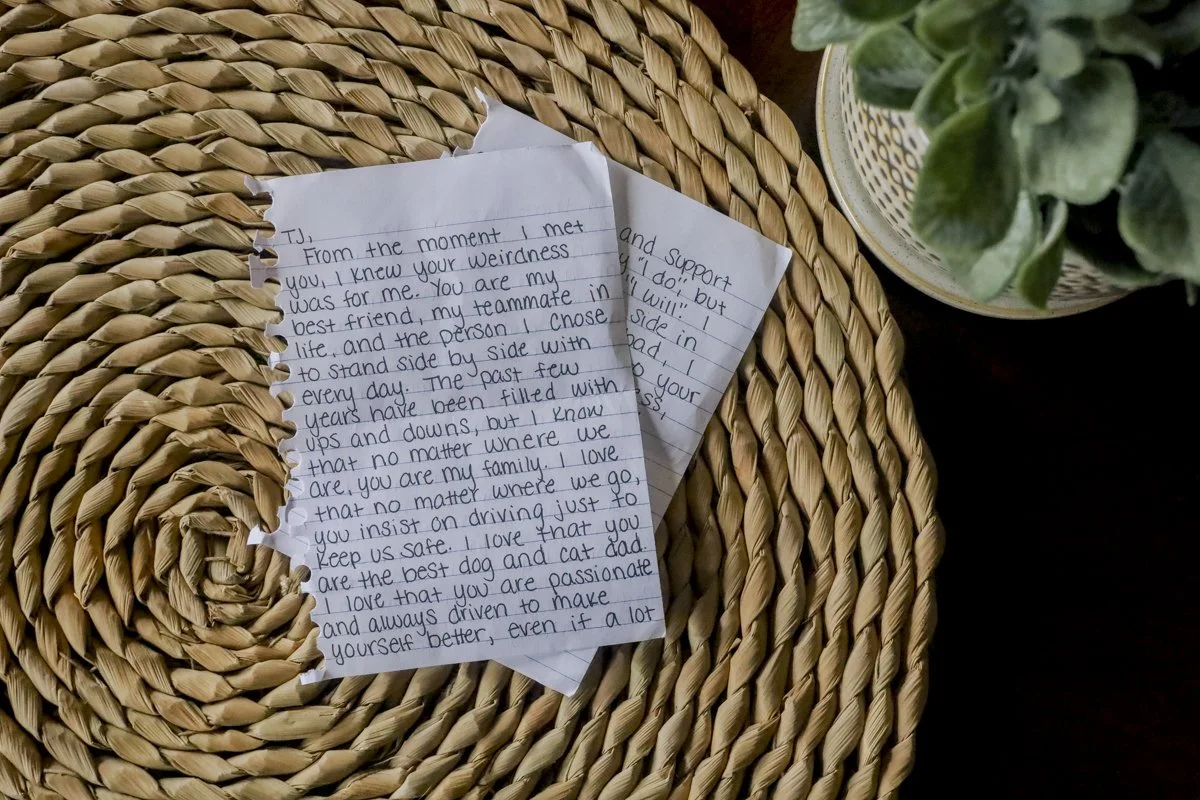 TJ,
From the moment I met
you, I knew your weirdness
was for me. You are my
best friend, my teammate in
life, and the person I chose
to stand side by side with
every day. The past few
years have been filled with
ups and downs, but I know
that no matter where we
are, you are my family. I love
that no matter where we go,
you insist on driving just to
keep us safe. I love that you
are the best dog and cat dad.
I love that you are passionate
and always driven to make
yourself better, even if a lot
and support
"I do" but
"I will". I
side in
I
your